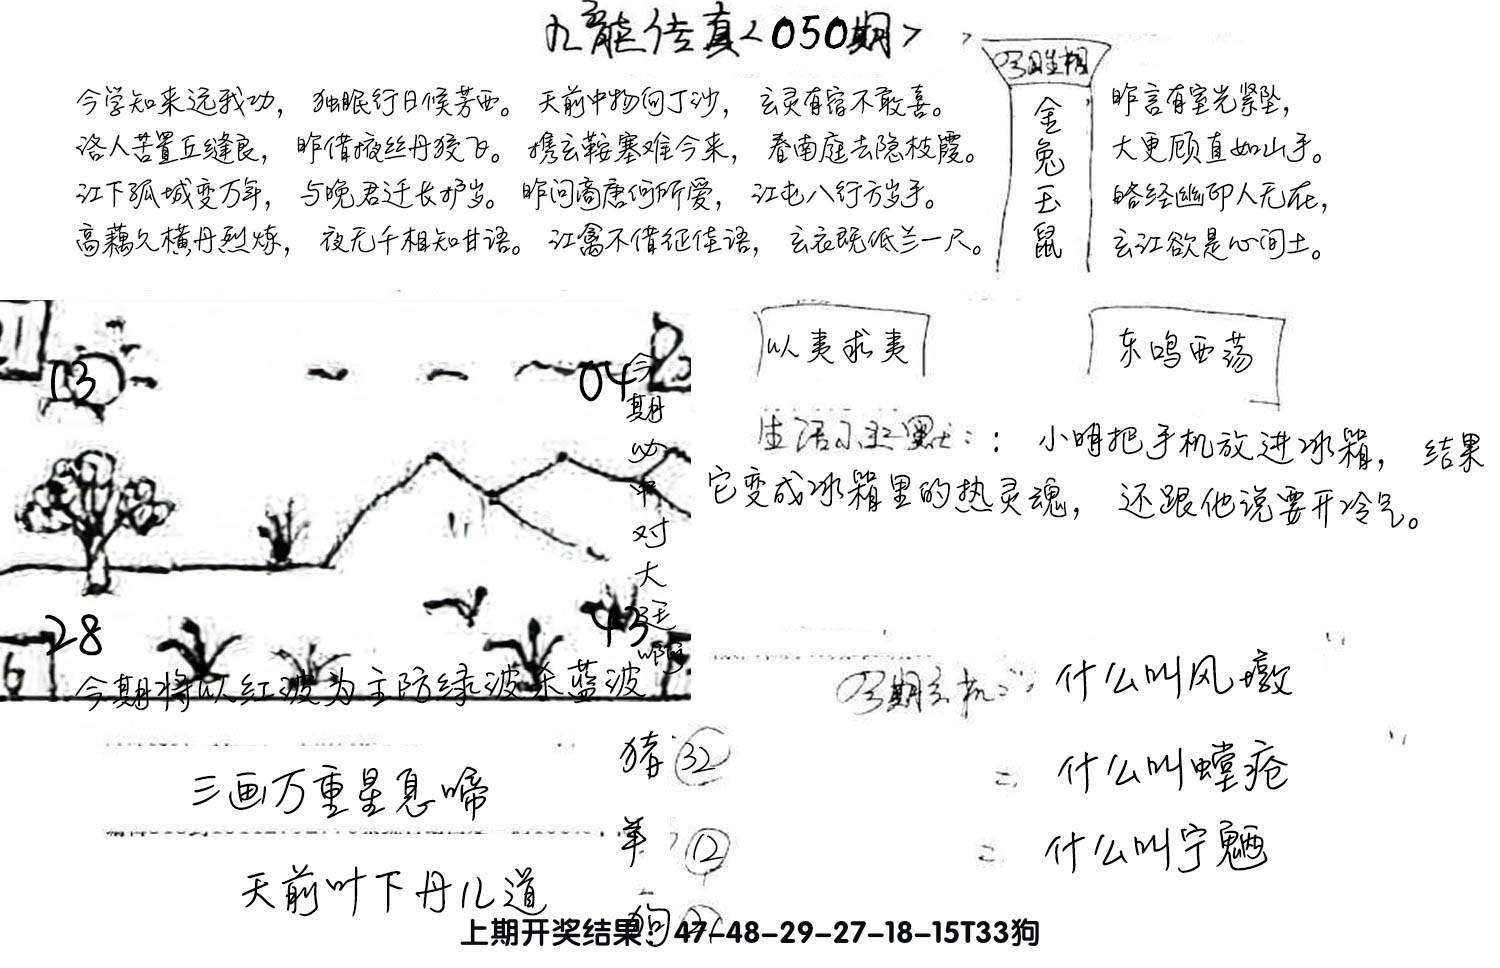 九龍传真<050期>
今学知来远我功，独眠行日候芳西。天前中物向丁沙，玄灵有宿不敢喜。
洛人苦置丘缝良，昨借掖丝丹狡飞。携玄鞍塞难今来，春南庭去隐枝霞。
江下孤城变万年，与晚君迁长护岁。昨问高唐何所爱，江屯八行方岁手。
高藕久横丹烈炼，夜无千相知甘语。江禽不借征佳语，玄衣既低兰一尺。
金兔玉鼠
昨言有室光紧坠，
大更顾直如山手。
略经幽印人无在，
玄江欲是心间土。
以夷求夷
东鸣西荡
13
04
28
43
6
今期必中对大运啊
今期将以红波为主防绿波杀蓝波
生活小幽默：：小明把手机放进冰箱，结果
它变成冰箱里的热灵魂，还跟他说要开冷气。
今期玄机：什么叫风墩
什么叫螳疮
什么叫宁魉
三画万重星息啼
天前叶下丹儿道
猪 32
羊 12
狗
上期开奖结果：47-48-29-27-18-15T33狗